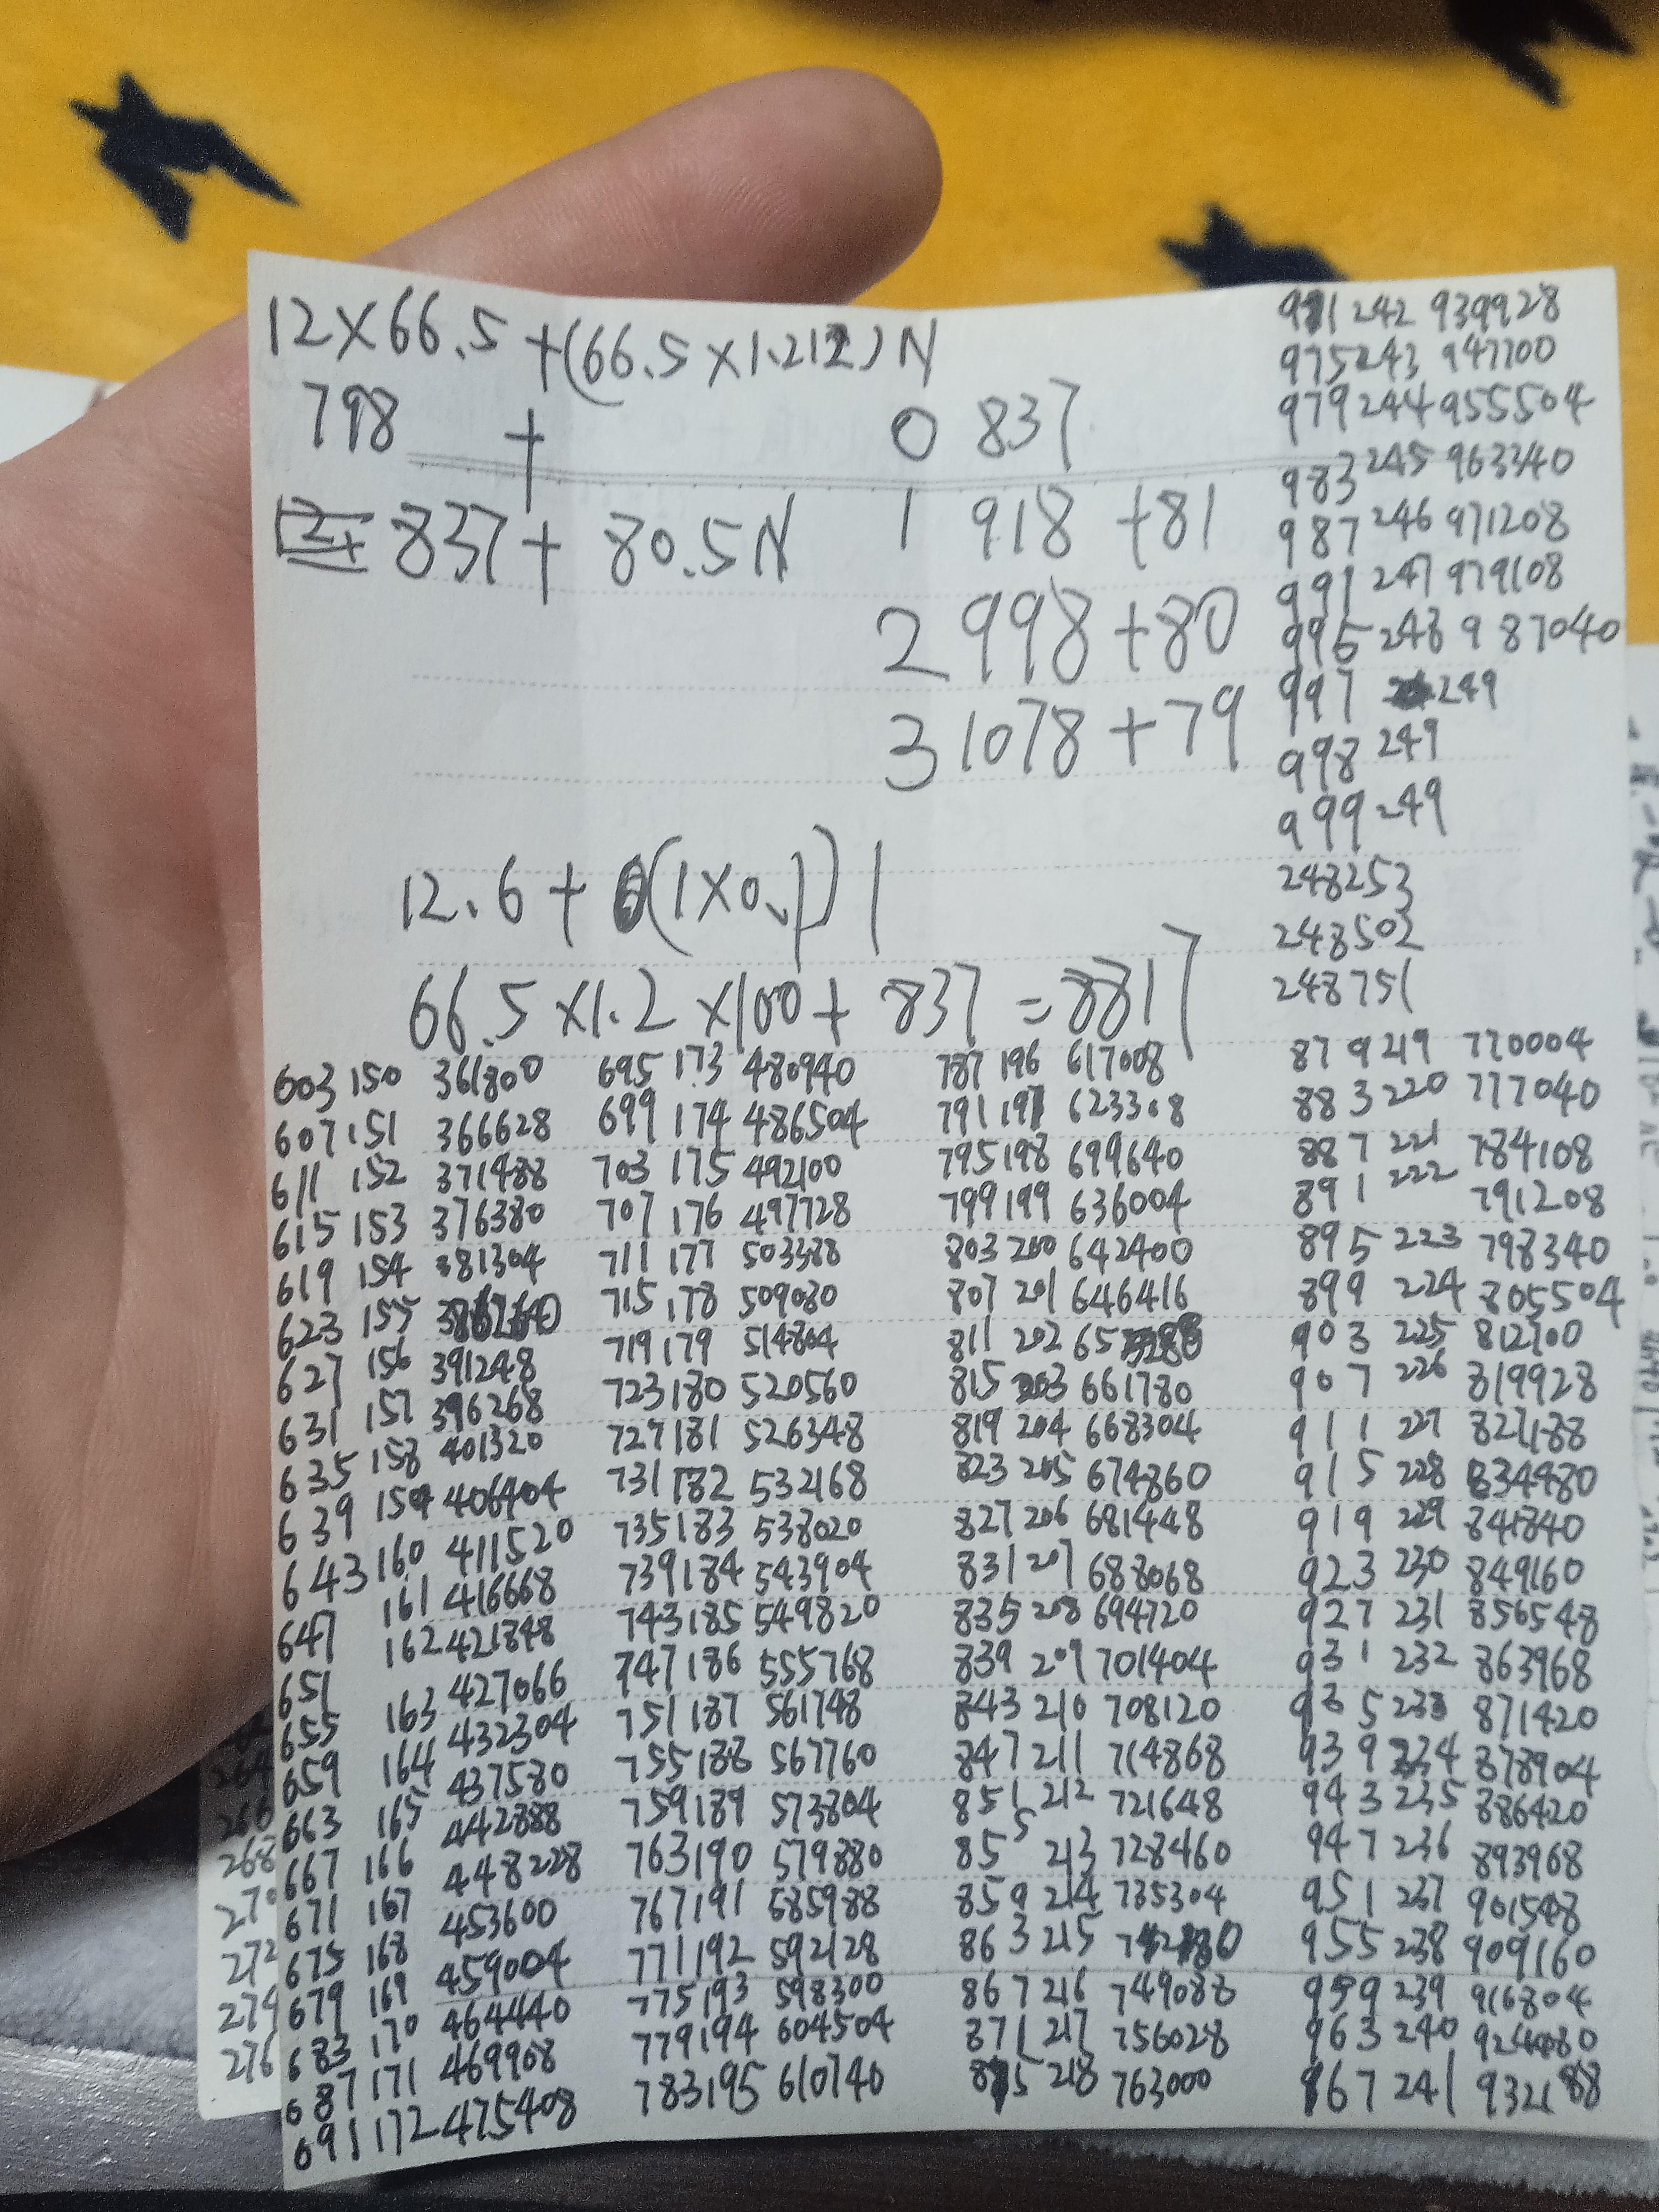 12×66.5+(66.5×1.212)N
798 + 0 837
837+80.5N 1 918 +81
2 998 +80
3 1078 +79
12.6+(1×0.1)1
66.5×1.2×100+837=8817
971 242 939928
975 243 947700
979 244 955504
983 245 963340
987 246 971208
991 247 979108
995 248 987040
997 249
998 249
999 249
248253
248502
248751
603 150 361800
607 151 366628
611 152 371488
615 153 376380
619 154 381304
623 155
627 156 391248
631 157 396268
635 158 401320
639 159 406404
643 160 411520
647 161 416668
651 162 421848
655 163 427066
659 164 432304
663 165 437580
667 166 442888
671 167 448228
675 168 453600
679 169 459004
683 170 464440
687 171 469908
691 172 475408
695 173 480940
699 174 486504
703 175 492100
707 176 497728
711 177 503388
715 178 509080
719 179 514804
723 180 520560
727 181 526348
731 182 532168
735 183 538020
739 184 543904
743 185 549820
747 186 555768
751 187 561748
755 188 567760
759 189 573804
763 190 579880
767 191 585988
771 192 592128
775 193 598300
779 194 604504
783 195 610740
787 196 617008
791 197 623308
795 198 699640
799 199 636004
803 200 642400
807 201 646416
811 202
815 203 661780
819 204 668304
823 205 674860
827 206 681448
831 207 688068
835 208 694720
839 209 701404
843 210 708120
847 211 714868
851 212 721648
855 213 728460
859 214 735304
863 215
867 216 749088
871 217 756028
875 218 763000
879 219 770004
883 220 777040
887 221 784108
891 222 791208
895 223 798340
899 224 805504
903 225 812700
907 226 819928
911 227 827188
915 228 834480
919 229 841840
923 230 849160
927 231 856548
931 232 863968
935 233 871420
939 234 878904
943 235 886420
947 236 893968
951 237 901548
955 238 909160
959 239 916804
963 240 924480
967 241 932188
264
266
268
270
272
274
276